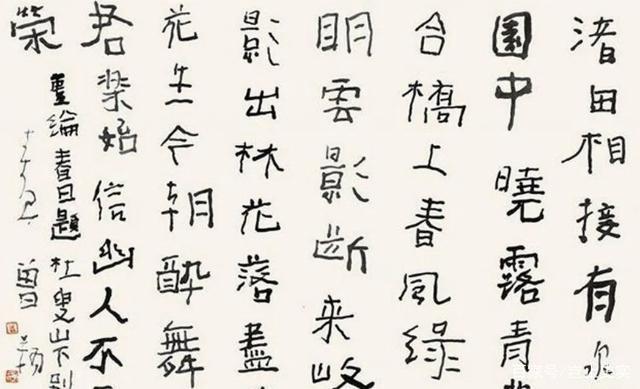 渚田相接有
園中曉露青
合橋上春風綠
明雲影斷來
影出林花落盡
花 今朝醉舞
君樂始信幽人不
榮
盧綸春日題杜叟山下別
曾翔
百家号/